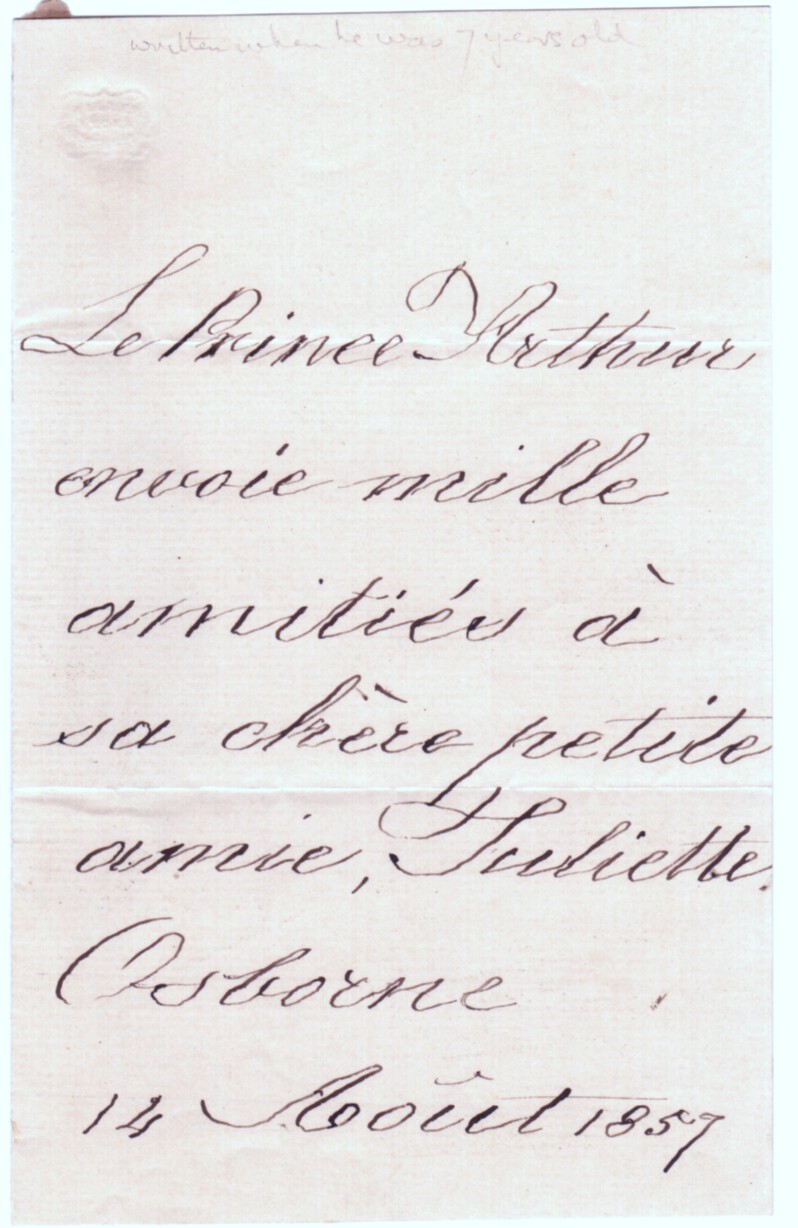 written when he was 7 years old
Le Prince Arthur
envoie mille
amitiés à
sa chère petite
amie, Juliette.
Osborne
14 Août 1857